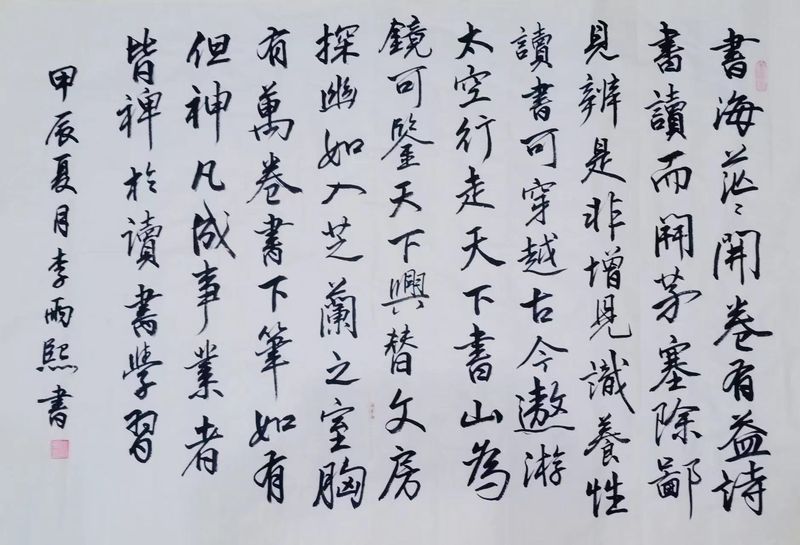 書海茫〻開卷有益詩
書讀而開茅塞除鄙
見辨是非增見識養性
讀書可穿越古今遨游
太空行走天下書山為
鏡可鑒天下興替文房
探幽如入芝蘭之室胸
有萬卷書下筆如有
但神凡成事業者
皆裨於讀書學習
甲辰夏月李雨熙書